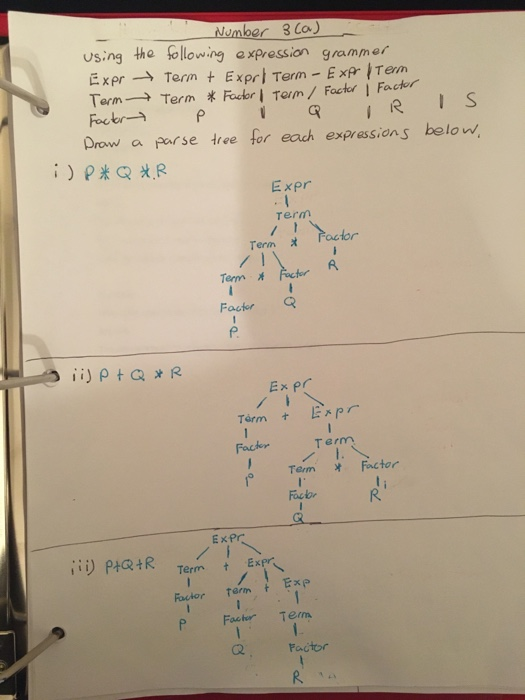 Number 3(a)
Using the following expression grammer
Expr → Term + Expr | Term - Expr | Term
Term → Term * Factor | Term / Factor | Factor
Factor → P | Q | R | S
Draw a parse tree for each expressions below.
i) P * Q * R
Expr
Term
Term * Factor
Term * Factor R
Factor Q
P
ii) P + Q * R
Expr
Term + Expr
Factor Term
P Term * Factor
Factor R
Q
iii) P+Q+R
Expr
Term + Expr
Factor Term + Exp
P Factor Term
Q Factor
R